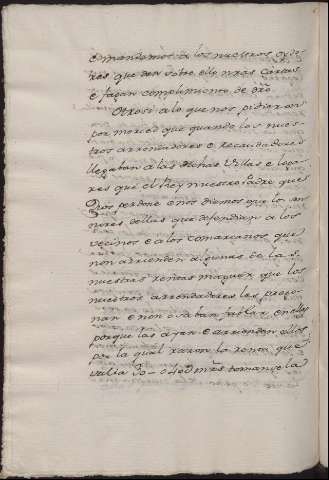 e mandamos a los nuestros oydo-
res que den sobre ello nras cartas
e fagan complimiento de dro
Otrosi a lo que nos pidieron
por merced que quando los nues-
tros arrendadores e recaudadores
llegaban a las dichas villas e loga-
res que el Rey nuestro padre que
Dios perdone o nos diemos que los
nores dellas que defendian a los
vecinos e a los comarcanos que
non arrienden algunas de las
nuestras rentas maguer que los
nuestros arrendadores las prego-
nan e non osaban fablar en ellas
porque las ayan e arrienden ellos
por la qual razon la renta que
valia mrs toman se la